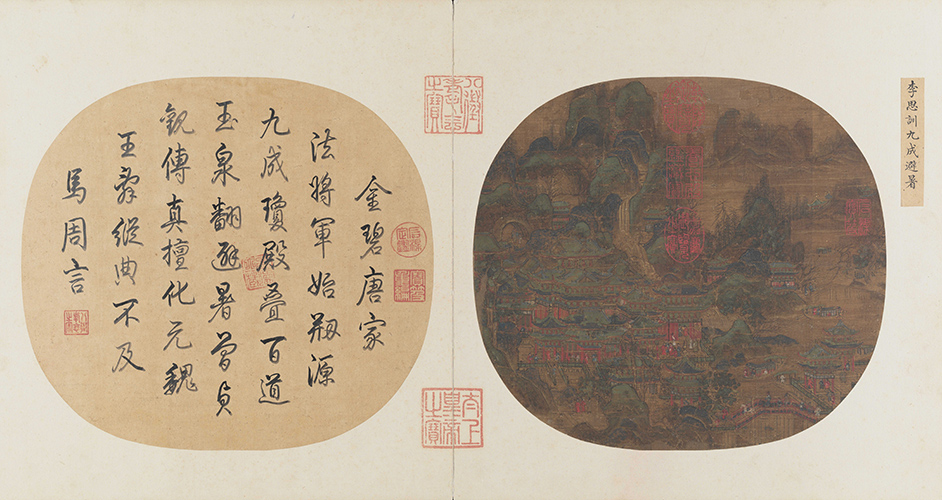 李思訓九成避暑
金碧唐家
法將軍始剏源
九成瓊殿疊百道
玉泉翻避暑曾貞
觀傳真擅化元魏
王辭縱典不及
馬周言
八徵耄念之寶
太上皇帝之寶